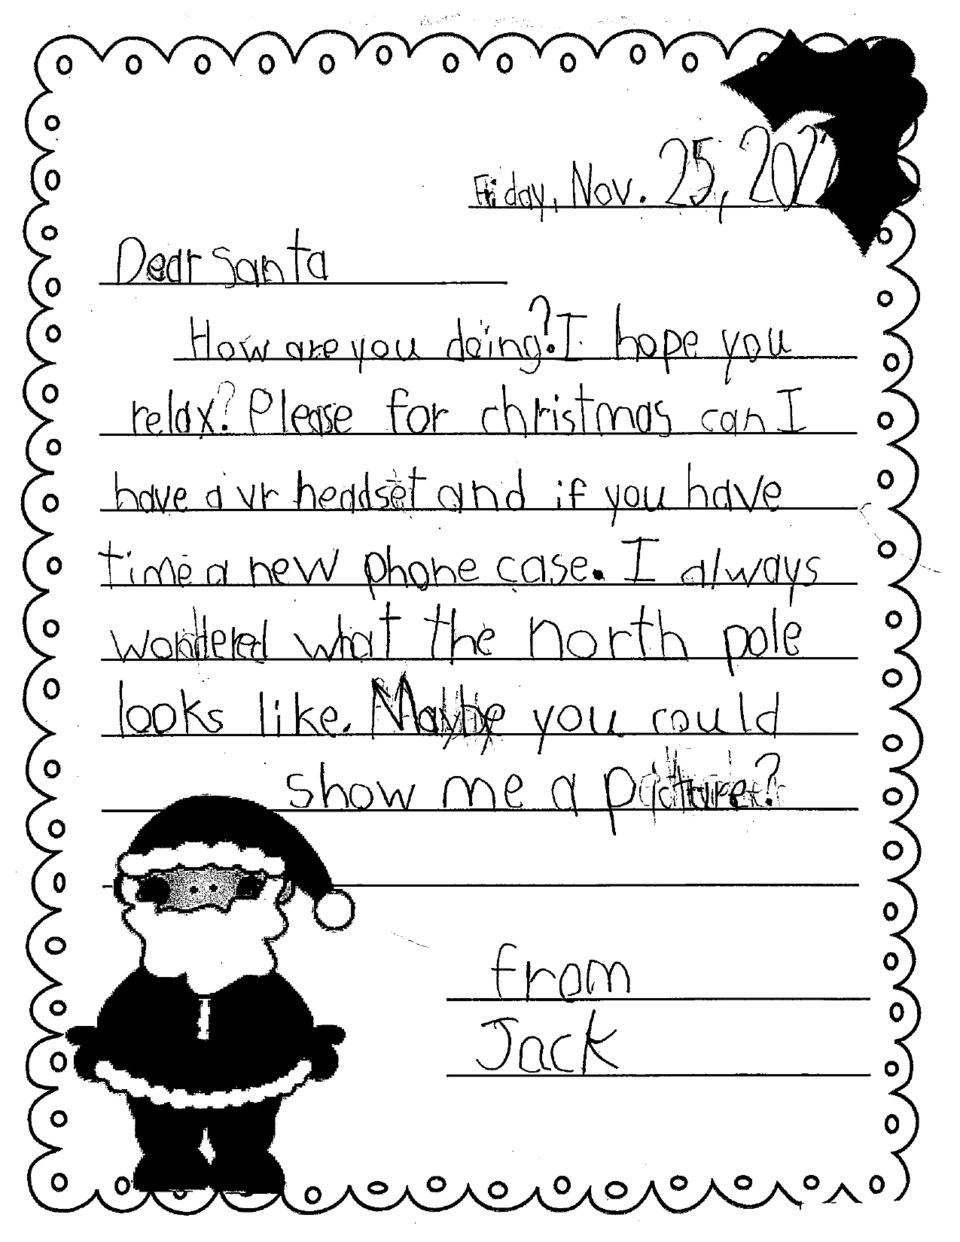 Friday, Nov. 25, 202
Dear Santa
How are you doing? I hope you
relax? Please for christmas can I
have a vr headset and if you have
time a new phone case. I always
wondered what the north pole
looks like. Maybe you could
show me a picture?
from
Jack